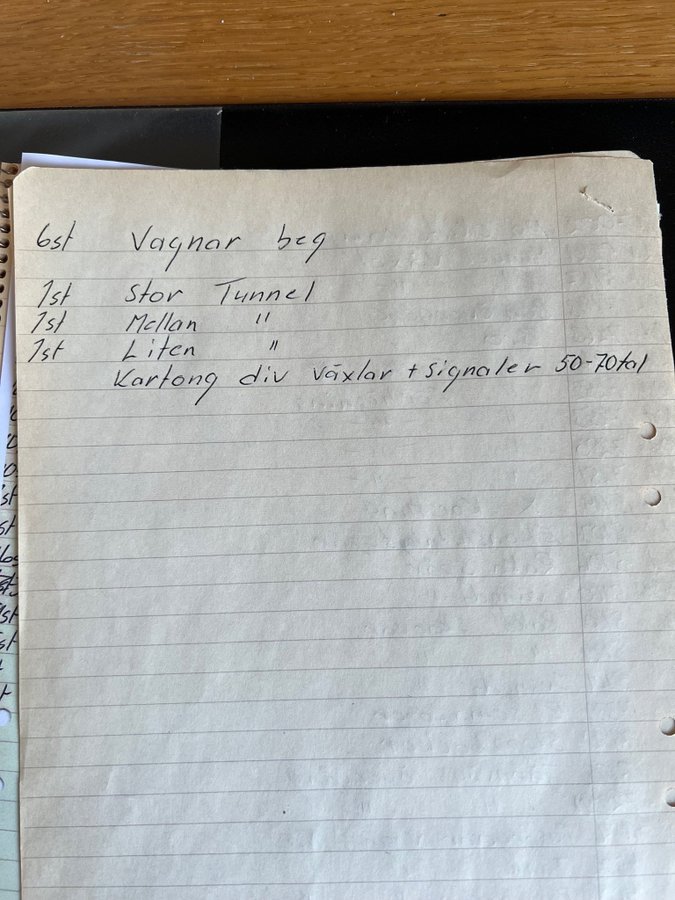 6st Vagnar beg
1st Stor Tunnel
1st Mellan "
1st Liten "
Kartong div växlar + signaler 50-70tal